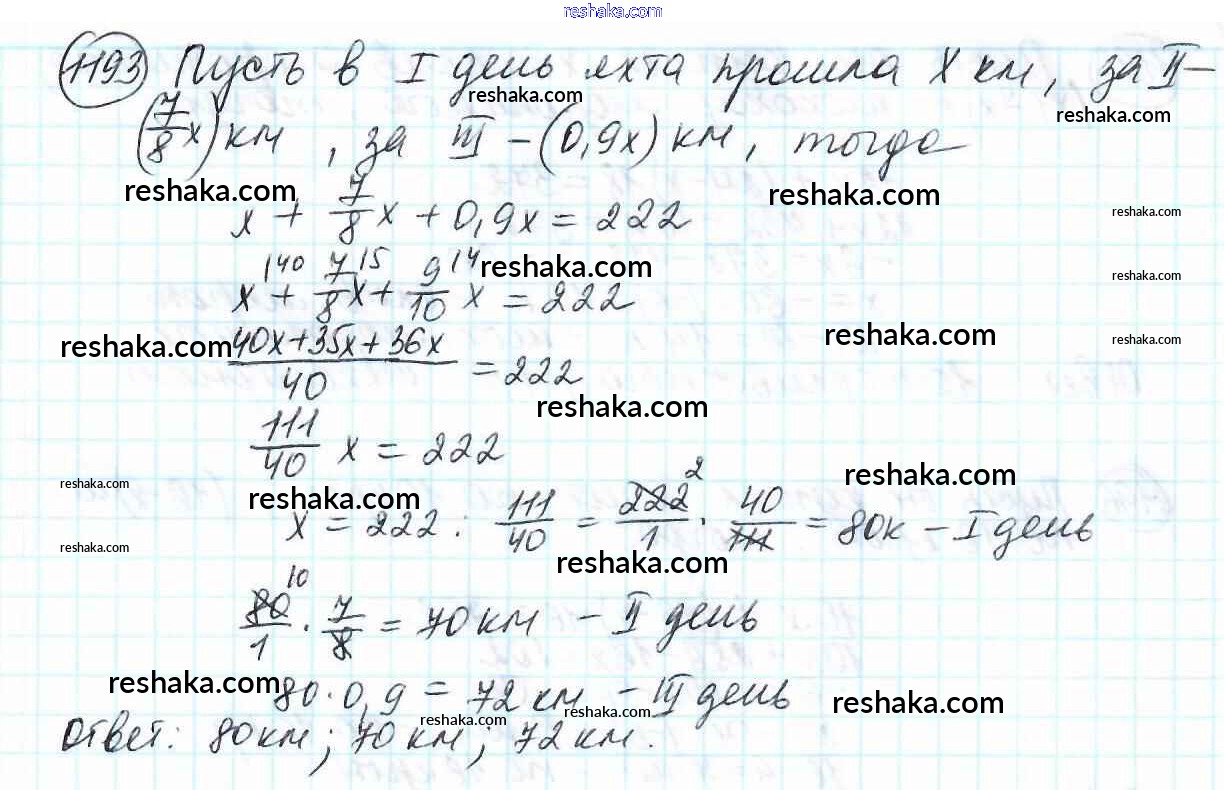 reshaka.com
1193 Пусть в I день яхта прошла x км, за II –
reshaka.com
reshaka.com
(7/8 x) км, за III – (0,9x) км, тогда
reshaka.com
reshaka.com
reshaka.com
x + 7/8 x + 0,9x = 222
reshaka.com
reshaka.com
x + 7/8 x + 9/10 x = 222
reshaka.com
reshaka.com
reshaka.com
(40x+35x+36x)/40 = 222
reshaka.com
111/40 x = 222
reshaka.com
reshaka.com
reshaka.com
x = 222 : 111/40 = 222/1 · 40/111 = 80к – I день
reshaka.com
reshaka.com
80/1 · 7/8 = 70 км – II день
reshaka.com
80 · 0,9 = 72 км – III день
reshaka.com
reshaka.com
reshaka.com
Ответ: 80 км; 70 км; 72 км.